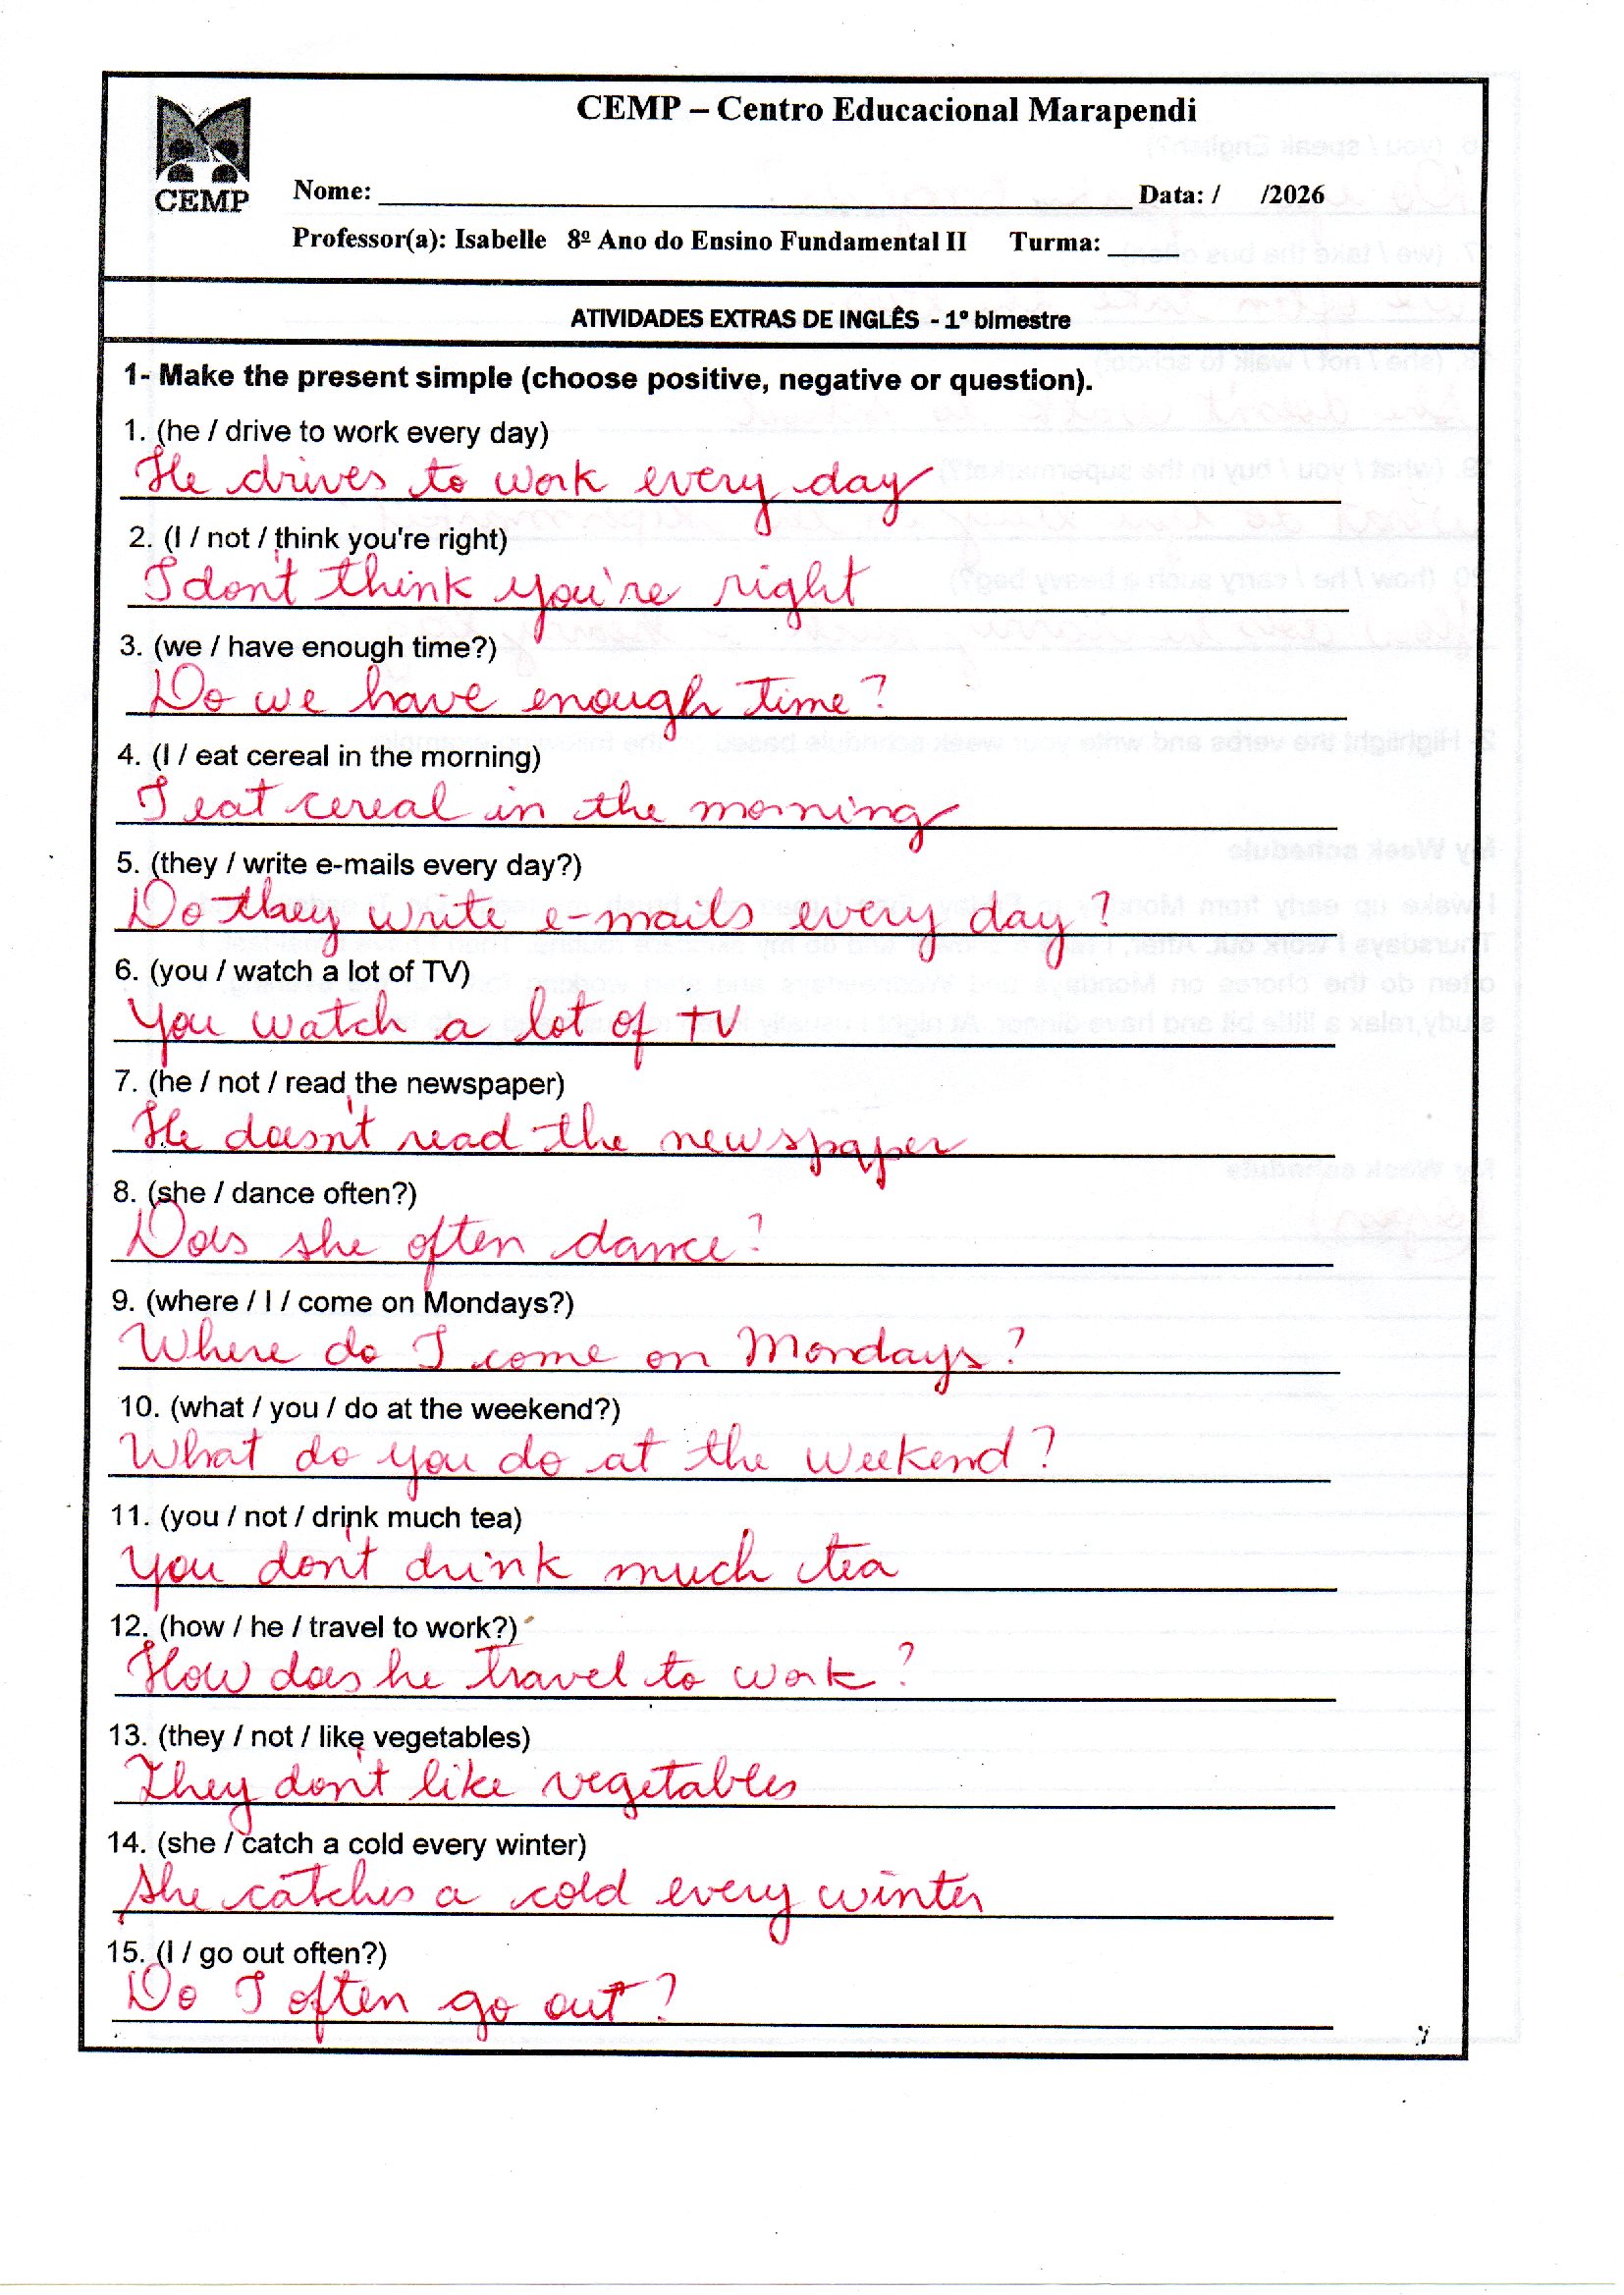 CEMP – Centro Educacional Marapendi
CEMP
Nome: ______ Data: / /2026
Professor(a): Isabelle 8º Ano do Ensino Fundamental II Turma: _____
ATIVIDADES EXTRAS DE INGLÊS - 1º bimestre
1- Make the present simple (choose positive, negative or question).
1. (he / drive to work every day)
He drives to work every day
2. (I / not / think you're right)
I don't think you're right
3. (we / have enough time?)
Do we have enough time?
4. (I / eat cereal in the morning)
I eat cereal in the morning
5. (they / write e-mails every day?)
Do they write e-mails every day?
6. (you / watch a lot of TV)
You watch a lot of TV
7. (he / not / read the newspaper)
He doesn't read the newspaper
8. (she / dance often?)
Does she often dance?
9. (where / I / come on Mondays?)
Where do I come on Mondays?
10. (what / you / do at the weekend?)
What do you do at the weekend?
11. (you / not / drink much tea)
You don't drink much tea
12. (how / he / travel to work?)
How does he travel to work?
13. (they / not / like vegetables)
They don't like vegetables
14. (she / catch a cold every winter)
She catches a cold every winter
15. (I / go out often?)
Do I often go out?